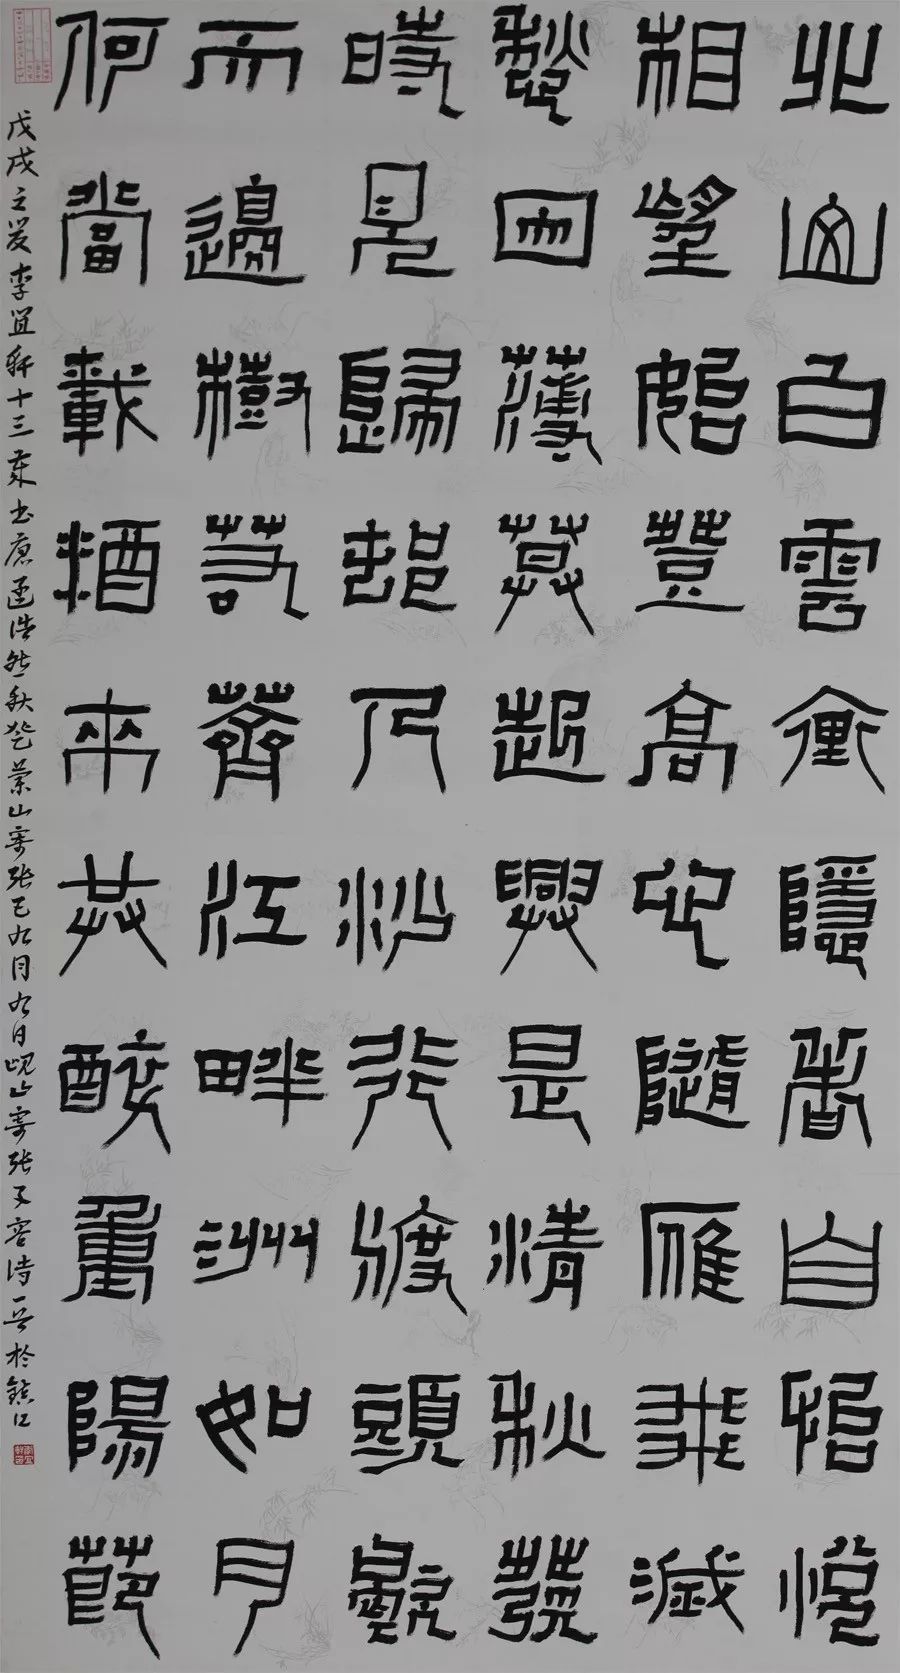 北山白雲裏隱者自怡悅
相望始登高心隨雁飛滅
愁因薄暮起興是清秋發
時見歸邨人沙行渡頭歇
天邊樹若薺江畔洲如月
何當載酒來共醉重陽節
戊戌之夏李宜十三书唐孟浩然秋登蘭山寄张五九月九日峴山寄张子容诗一首於鎮江